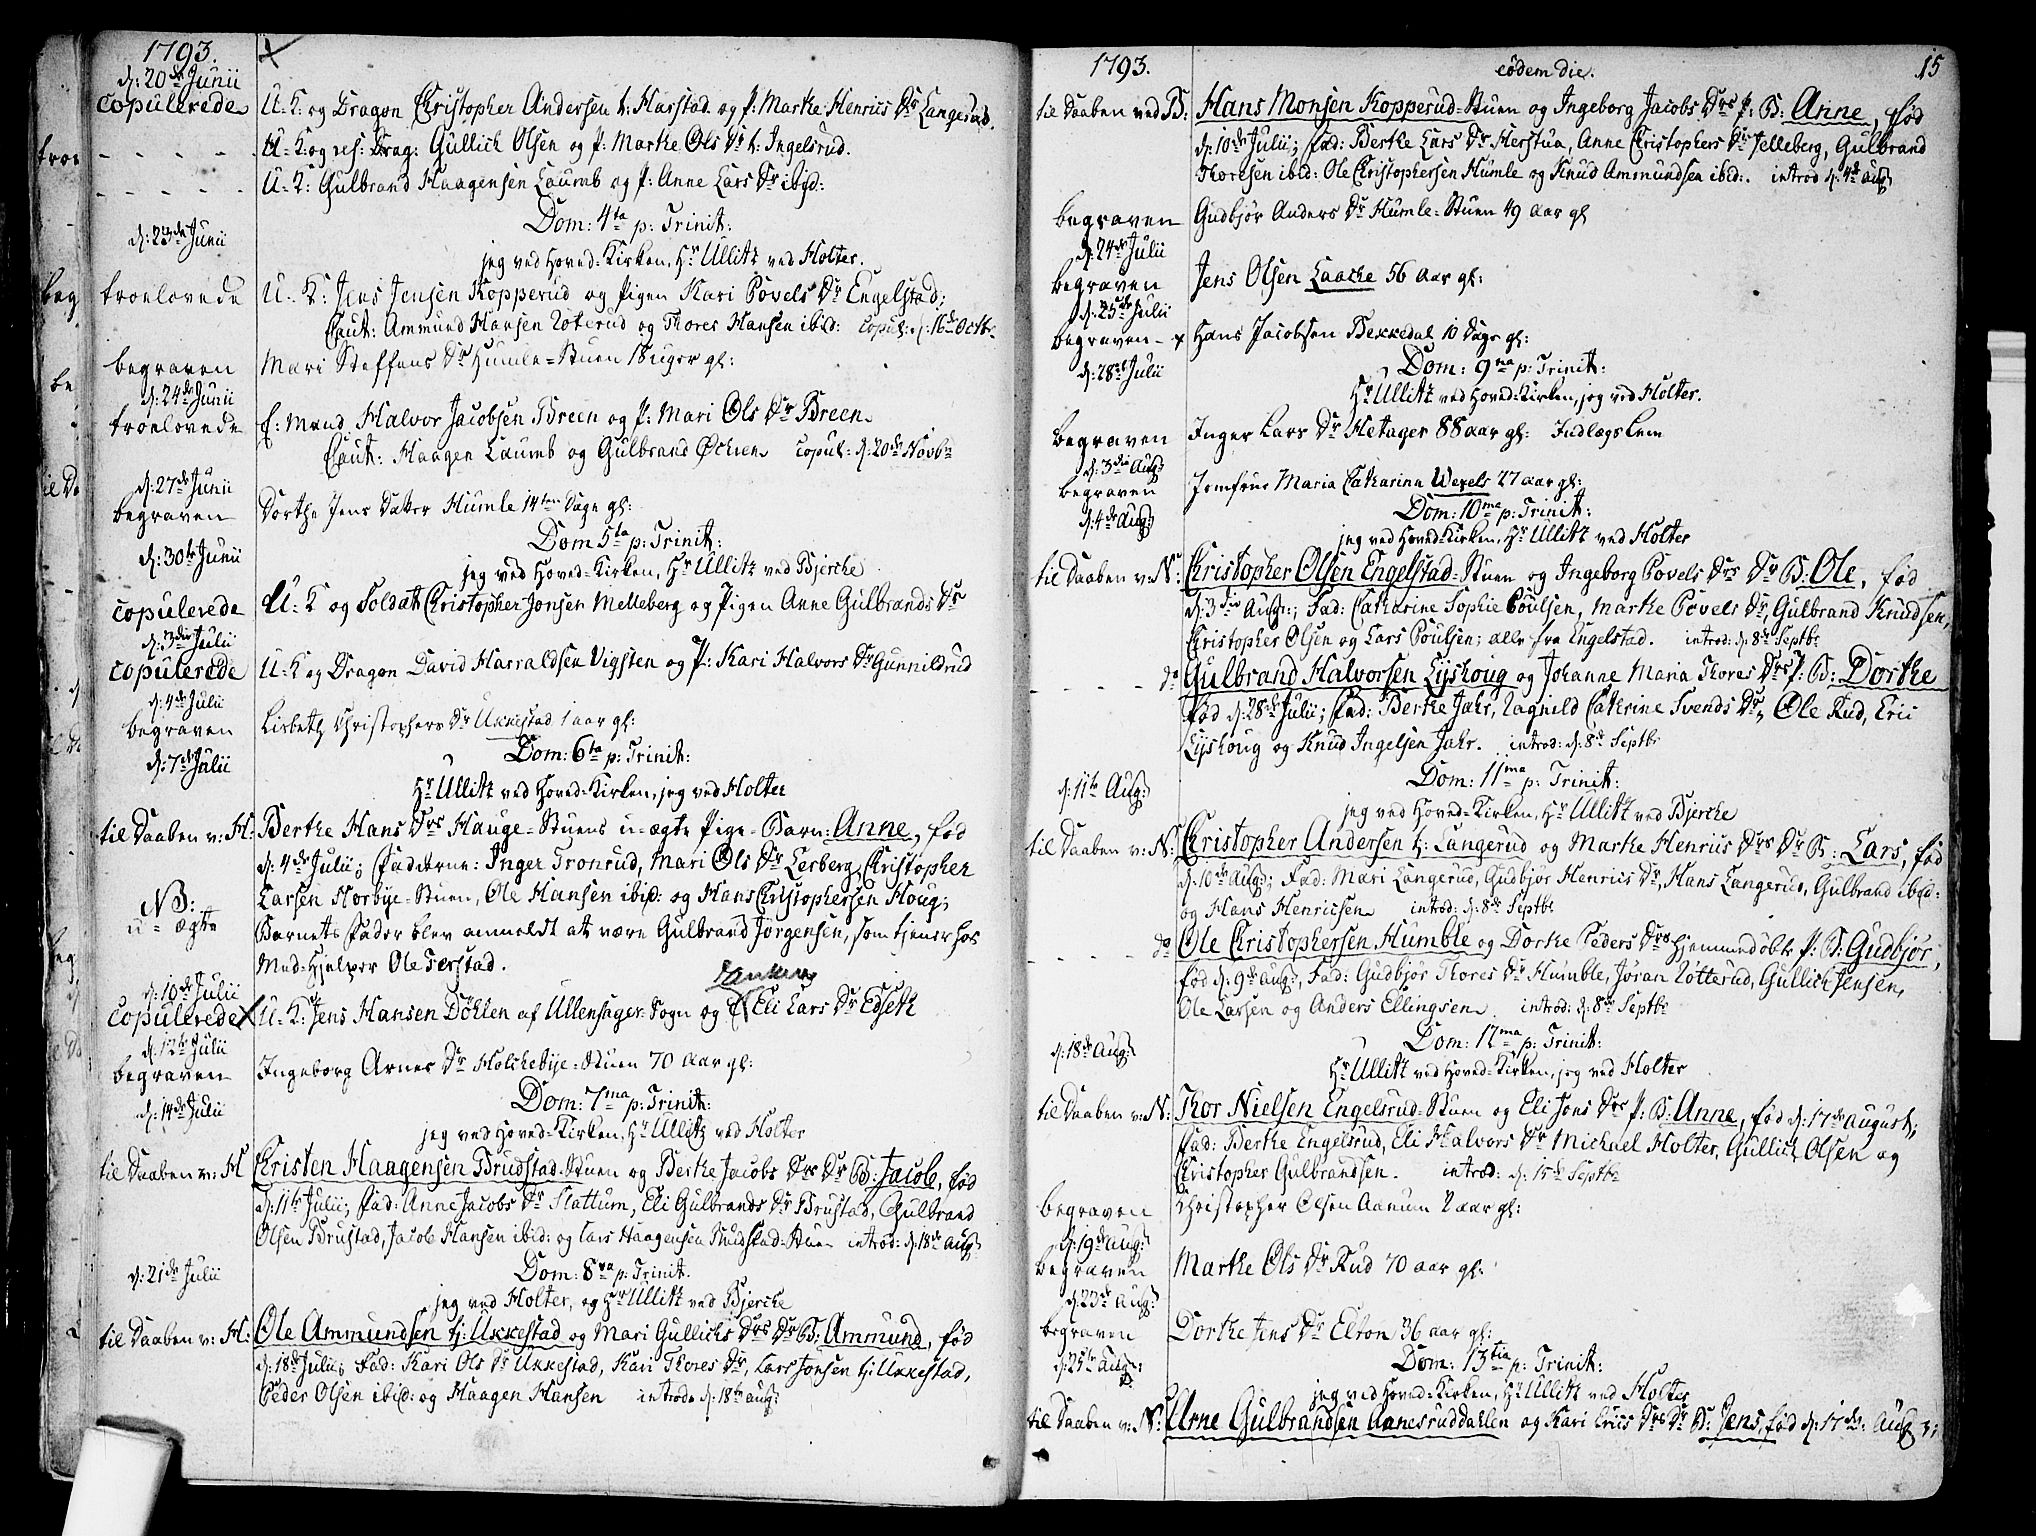 1793.
d: 20de Junii
copulerede U. K. og Dragon Christopher Andersen t: Harstad og P: Marthe Henrics Dr Langerud.
- - - - - U. K: og res: Drag: Gullich Olsen og P: Marthe Ols Dr t: Ingelsrud.
- - - - - U. K: Gulbrand Haagensen Laumb og P: Anne Lars Dr ibid:
Dom: 4ta p: Trinit:
d: 23de Junii
jeg ved Hoved-Kirken, Hr Ullitz ved Holter.
troelovede U. K: Jens Jensen Kopperud og Pigen Kari Povels Dr Engelstad;
Caut: Ammund Hansen Røterud og Thores Hansen ibid: copul: d: 16de Octbr
begraven Mari Steffens Dr Humle-Stuen 18 uger gl:
d: 24de Junii
troelovede E: Mand Halvor Jacobsen Breen og P: Mari Ols Dr Breen
Caut: Haagen Laumb og Gulbrand Ochren copul: d: 20de Novbr
d: 27de Junii
begraven Dorthe Jens Datter Humle 14ten Dage gl:
Dom 5ta p: Trinit:
d: 30te Junii
jeg ved Hoved-Kirken, Hr Ullitz ved Bjerche
copulerede U. K og Soldat Christopher Jonsen Melleberg og Pigen Anne Gulbrands Dr
d: 3die Julii
copulerede U. K og Dragon David Harraldsen Vigsten og P: Kari Halvors Dr Gunnildrud
d: 4de Julii
begraven Lisbeth Christophers Dr Ukkestad 1 aar gl:
Dom: 6ta p: Trinit:
d: 7de Julii
Hr Ullitz ved Hoved-Kirken, jeg ved Holter
til Daaben v: H: Berthe Hans Drs Hauge-Stuens u-ægte Pige-Barn: Anne, fød
d: 4de Julii; Fadderne: Inger Tronrud, Mari Ols Dr Lerberg, Christopher
Larsen Horbye-Stuen, Ole Hansen ibid: og Hans Christophersen Houg;
NB:
u-ægte Barnets Fader blev anmeldt at være Gulbrand Jørgensen, som tjener hos
Med-Hjelper Ole Terstad.
d: 10de Julii
copulerede U. K: Jens Hansen Döhlen af Ullensager Sogn og E Eli Lars Dr Edseth
d: 12te Julii
begraven Ingeborg Arnes Dr Holchebye-Stuen 70 aar gl:
Dom: 7ma p: Trinit:
d: 14de Julii
jeg ved Hoved-Kirken, Hr Ullitz ved Holter
til Daaben v: H Christen Haagensen Brudstad-Stuen og Berthe Jacobs Drs Dr B: Jacob, fød
d: 11te Julii; Fad: Anne Jacobs Dr Slattum, Eli Gulbrands Dr Brustad, Gulbrand
Olsen Brustad, Jacob Hansen ibid: og Lars Haagensen Brudstad-Stuen introd: d: 18de Aug:
Dom: 8va p: Trinit.
d: 21de Julii
jeg ved Holter, og Hr Ullitz ved Bjerche
til Daaben v: H: Ole Ammundsen tj: Ukkestad og Mari Gullichs Drs Dr B: Ammund, fød
d: 18de Julii; Fad: Kari Ols Dr Ukkestad, Kari Thores Dr, Lars Jonsen tj: Ukkestad,
Peder Olsen ibid: og Haagen Hansen introd: d: 18de Aug:
1793. eödem die. 15
til Daaben ved B: Hans Monsen Kopperud-Stuen og Ingeborg Jacobs Drs P: B: Anne, fød
d: 10de Julii; Fad: Berthe Lars Dr Herstua, Anne Christophers Dr Jelleberg, Gulbrand
Thoresen ibid: Ole Christophersen Humle og Knud Ammundsen ibid:. introd d: 4de Aug
begraven Gudbjør Anders Dr Humle-Stuen 49 aar gl
d: 24de Julii
begraven Jens Olsen Laache 56 aar gl:
d: 25de Julii
begraven - x Hans Jacobsen Bekkedal 10 Dage gl:
Dom: 9na p: Trinit:
d: 28de Julii
Hr Ullitz ved Hoved-Kirken, jeg ved Holter.
begraven Inger Lars Dr Hetager 88 aar gl: Indlægs Lem
d: 3die Aug:
begraven Jomfrue Maria Catharina Wexels 27 aar gl:
Dom: 10ma p: Trinit:
d: 4de Aug:
jeg ved Hoved-Kirken, Hr Ullitz ved Holter
til Daaben v: N: Christopher Olsen Engelstad-Stuen og Ingeborg Povels Drs Dr B. Ole, fød
d: 3die Aug:; Fad: Catharine Sophie Poulsen, Marthe Povels Dr, Gulbrand Knudsen,
Christopher Olsen og Lars Poulsen; alle fra Engelstad. introd: d: 8de Septbr
- - - - do Gulbrand Halvorsen Lyshoug og Johanne Maria Thores Drs P: B: Dorthe
fød d: 28de Julii; Fad: Berthe Jahr, Ragnild Cathrine Svends Dr, Ole Rud, Eric
Lyshoug og Knud Ingelsen Jahr. introd: d: 8de Septbr
Dom: 11ma p: Trinit:
d: 11te Aug:
jeg ved Hoved-Kirken, Hr Ullitz ved Bjerche
til Daaben v: N: Christopher Andersen t: Langerud og Marthe Henrics Drs Dr B: Lars, fød
d: 10de Aug:; Fad: Mari Langerud, Gudbjør Henrics Dr, Hans Langerud, Gulbrand ibid:
og Hans Henricsen introd: d: 8de Septbr
- - - - do Ole Christophersen Humble og Dorthe Peders Drs hjemmedöbte P: B: Gudbjør,
fød d: 9de Aug:, Fad: Gudbjør Thores Dr Humble, Jøran Røtterud, Gullich Jensen,
Ole Larsen og Anders Ellingsen. introd: d: 8de Septbr
Dom: 12ma p: Trinit:
d: 18de Aug:
Hr Ullitz ved Hoved-Kirken, jeg ved Holter
til Daaben v: N: Thor Nielsen Engelsrud-Stuen og Eli Jons Drs P: B: Anne, fød d: 17de August;
Fad: Berthe Engelsrud, Eli Halvors Dr, Michael Holter, Gullich Olsen og
Christopher Gulbrandsen. introd: d: 15de Septbr
begraven Christopher Olsen Aamum 2 aar gl:
d: 19de Aug:
begraven Marthe Ols Dr Rud 70 aar gl:
d: 23de Aug:
begraven Dorthe Jens Dr Elton 36 aar gl:
Dom: 13tia p: Trinit:
d: 25te Aug:
jeg ved Hoved-Kirken, Hr Ullitz ved Holter
til Daaben v: N: Arne Gulbrandsen Aanesruddahlen og Kari Erics Drs Dr B: Jens, fød d: 17de Aug:;